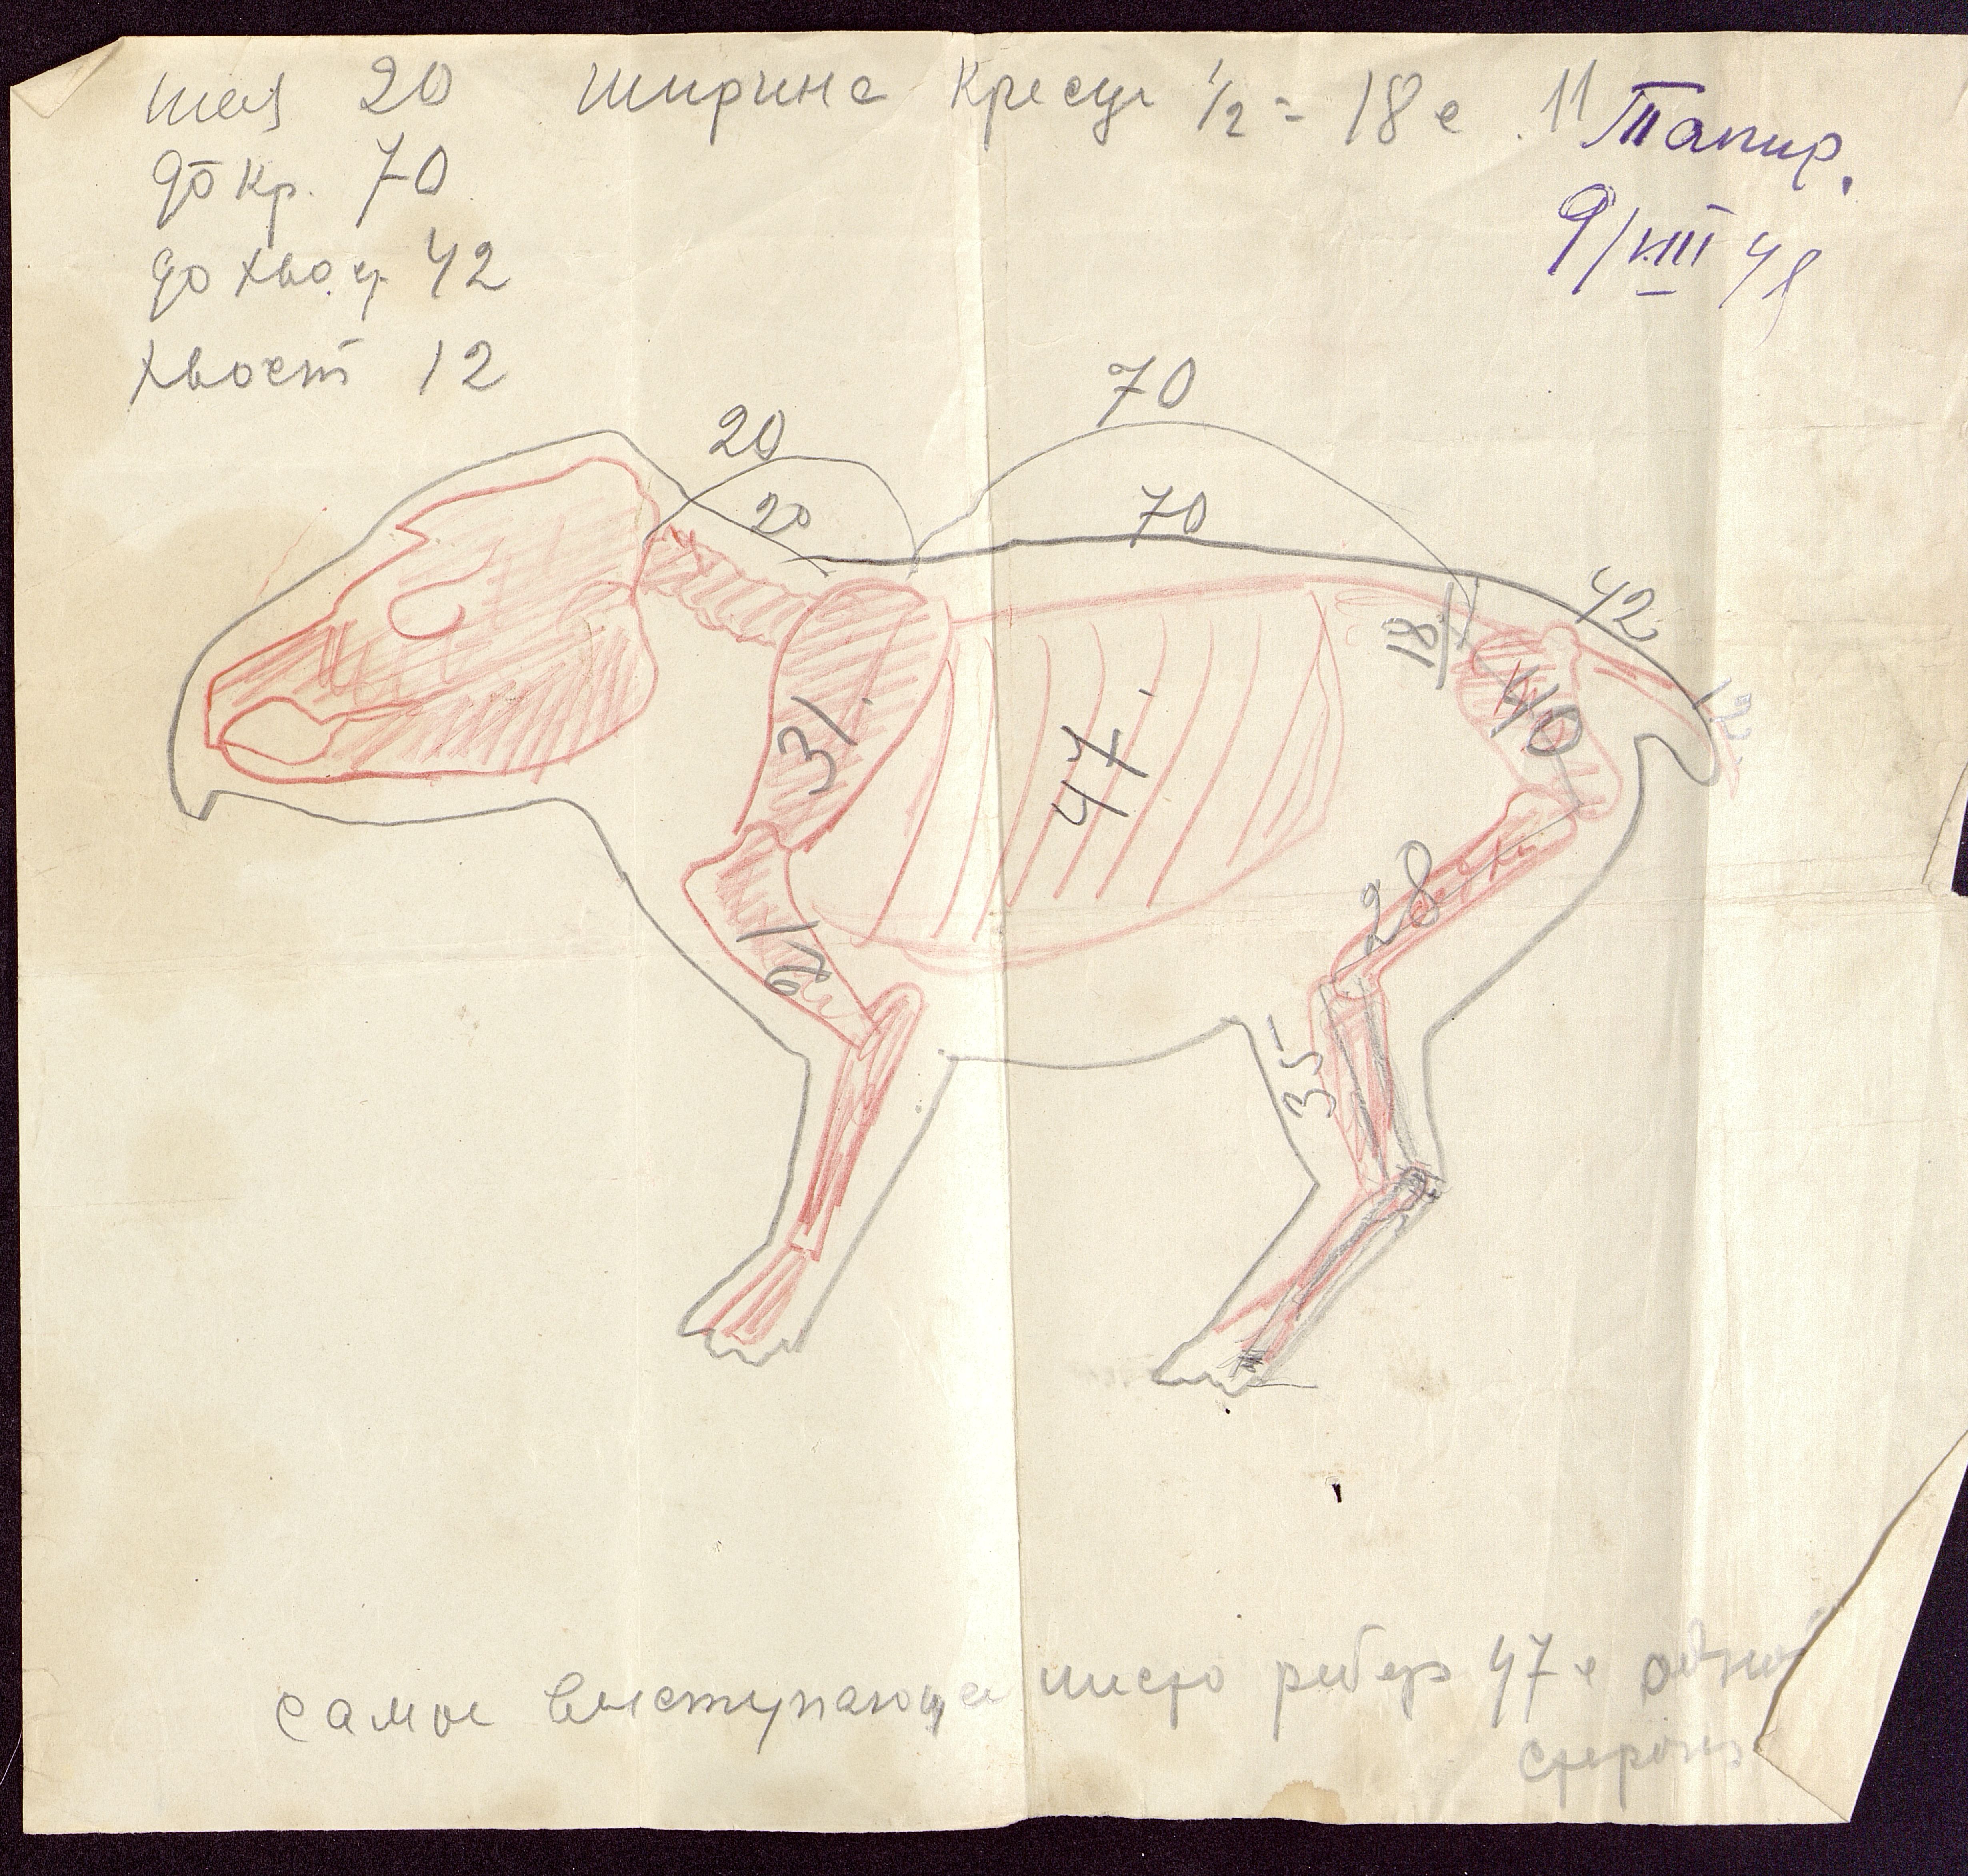 шея 20 ширина Кресц 1/2 = 18 с. 11
Тапир.
до Кр. 70
9/VIII 48
до хвост 42
хвост 12
70
20
20
70
42
18
12
40
31
47.
28
35
самое выступающе место ребер 47 с одной
стороны